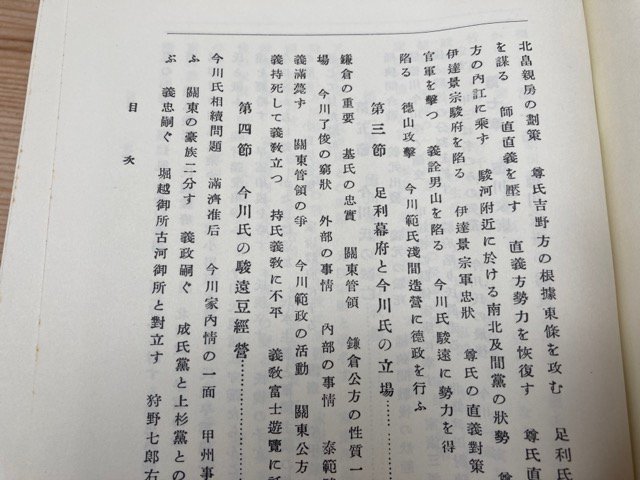 北畠親房の劃策　尊氏吉野方の根據東條を攻む　足利氏
を謀る　師直直義を壓す　直義方勢力を恢復す　尊氏直
方の內訌に乘ず　駿河附近に於ける南北及間黨の狀勢
伊達景宗駿府を陷る　伊達景宗軍忠狀　尊氏の直義對策
官軍を擊つ　義詮男山を陷る　今川氏駿遠に勢力を得
陷る　德山攻擊　今川範氏淺間造營に德政を行ふ
第三節　足利幕府と今川氏の立場
鎌倉の重要　基氏の忠實　關東管領　鎌倉公方の性質一
場　今川了俊の窮狀　外部の事情　內部の事情　泰範
義滿薨ず　關東管領の爭　今川範政の活動　關東公方
義持死して義敎立つ　持氏義敎に不平　義敎富士遊覽に
第四節　今川氏の駿遠豆經營
今川氏相續問題　滿濟准后　今川家內情の一面　甲州事
ふ　關東の豪族二分す　義政嗣ぐ　成氏黨と上杉黨との
ぶ　義忠嗣ぐ　堀越御所古河御所と對立す　狩野七郎右
目次